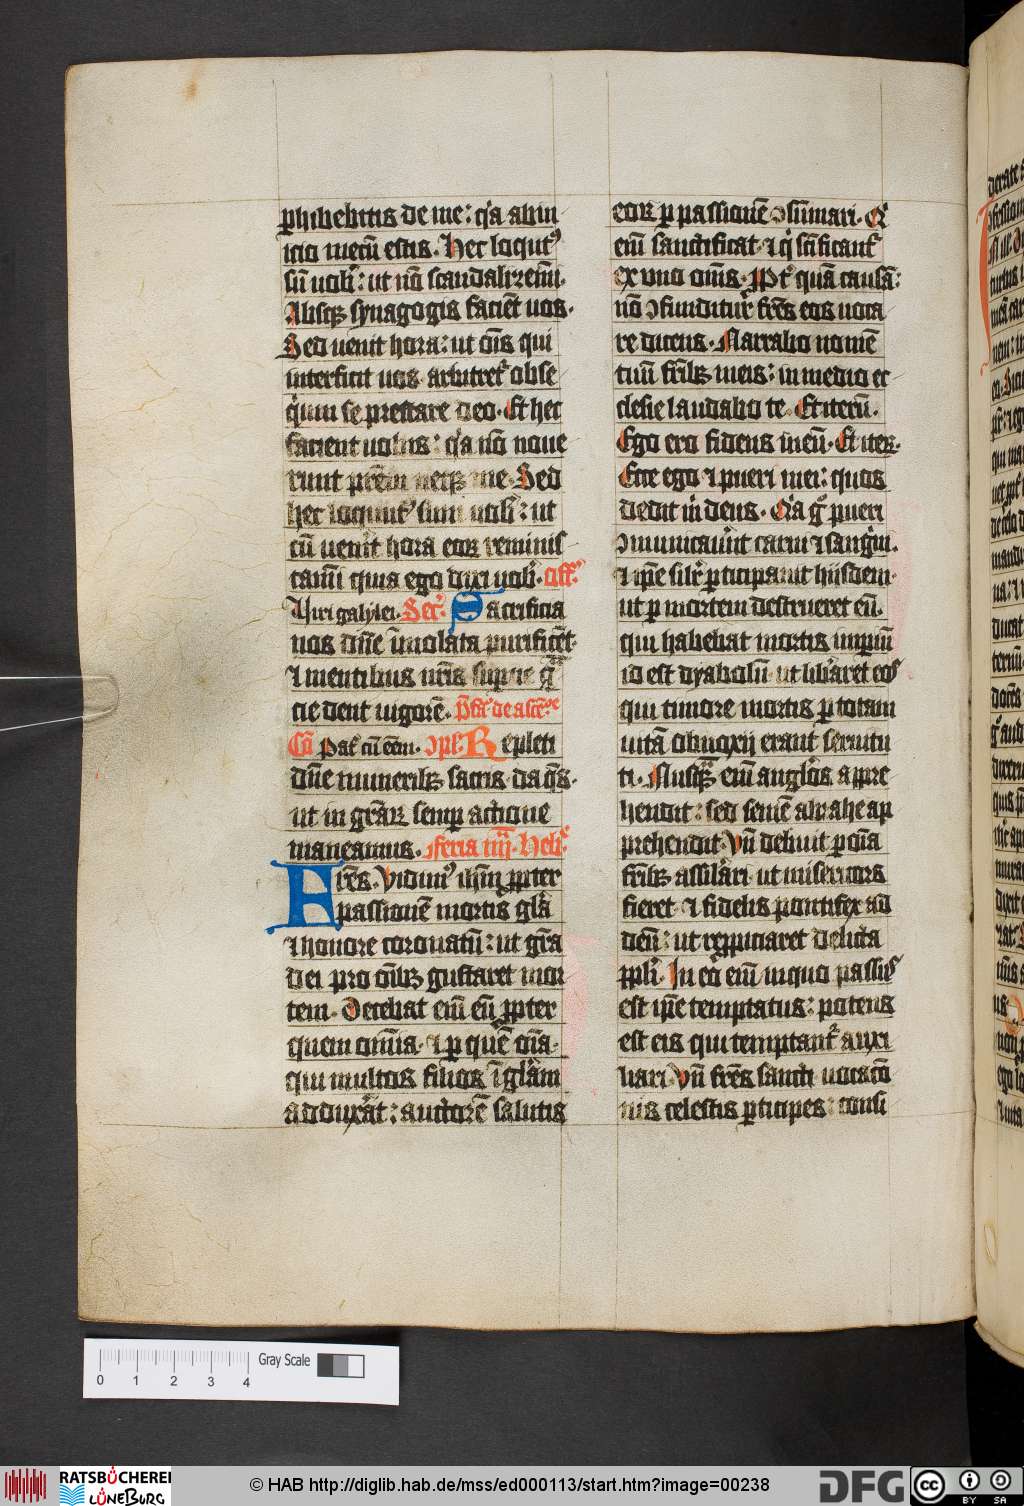 ꝑhibebitis de me: q̇a ab in
icio mecū estis. Hec locutꝰ
sū uob̄: ut nō scandalizem̄i.
Absqꝫ synagogis facient uos.
Sed uenit hora: ut om̄s qui
interficit uos arbitret᷑ obse
q̇ium se prestare deo. Et hec
facient uobis: q̇a nō noue
runt pr̄em neqꝫ me. Sed
hec locutꝰ sum uob̄: ut
cū uen̄it hora eoꝝ reminis
cam̄i quia ego dixi uob̄. Off.
Viri galylei. Secr̄. Sacrificia
nos dn̄e īmolata purificēt.
⁊ mentibus nr̄is supne gr̄a
cie dent uigorē. P̄fa᷑. de ascē.
Cū Pat᷑ cū eēm. Ꝯpl᷑. Repleti
dn̄e muneribꝫ sacris. da qs̄.
ut in gr̄aꝝ semꝑ actione
maneamus. Feria iiij. Heb᷑.
Fr̄es. Vidimꝰ ih̄m ꝓpter
passionē mortis gl̄a
⁊ honore coronatū: ut gr̄a
dei pro oīb̄ꝫ gustaret mor
tem. Decebat eīm eū ꝓpter
quem om̄ia. ⁊ ꝑ quē oīa.
qui multos filios ī gl̄am
adduxa̅t: auctorē salutis
eoꝝ ꝑ passionē ꝯsūmari. Q̇
eīm sanctificat ⁊ q̇ sc̄ificant᷑
ex uno om̄s. Ppt᷑ quā causā:
nō ꝯfunditur fr̄es eos uoca
re dicens. Narrabo nomē
tuū fr̄ibꝫ meis: in medio ec
clesie laudabo te. Et iterū.
Ego ero fidens in eū. Et iter̄.
Ecce ego ⁊ pueri mei: quos
dedit m̄ deus. Q̇a gͦ pueri
ꝯmunicauerūt carni ⁊ sanġni.
⁊ ip̄e sil̄r ꝑticipauit hijsdem.
ut ꝑ mortem destrueret eū.
qui habebat mortis imꝑiū
id est dyabolū. ut lib̄aret eos
qui timore mortis ꝑ totam
uitā obnoxij erant seruitu
ti. Nusq̄ᷓ eīm angl̄os appre
hendit: sed semē abrahe ap
prehendit. Vn̄ debuit ꝑ oīa
fr̄ibꝫ assil̄ari. ut misericors
fieret. ⁊ fidelis pontifex ad
deū: ut repꝓpiciaret delicta
ppl̄i. In eo eīm in quo passus
est ip̄e temptatus: potens
est eis qui temptant᷑ auxi
liari. Vn̄ fr̄es sancti uocacō
nis celestis ꝑticipes: consi
Gray Scale
0 1 2 3 4
RATSBÜCHEREI
LÜNEBURG
© HAB http://diglib.hab.de/mss/ed000113/start.htm?image=00238
DFG
cc
BY SA